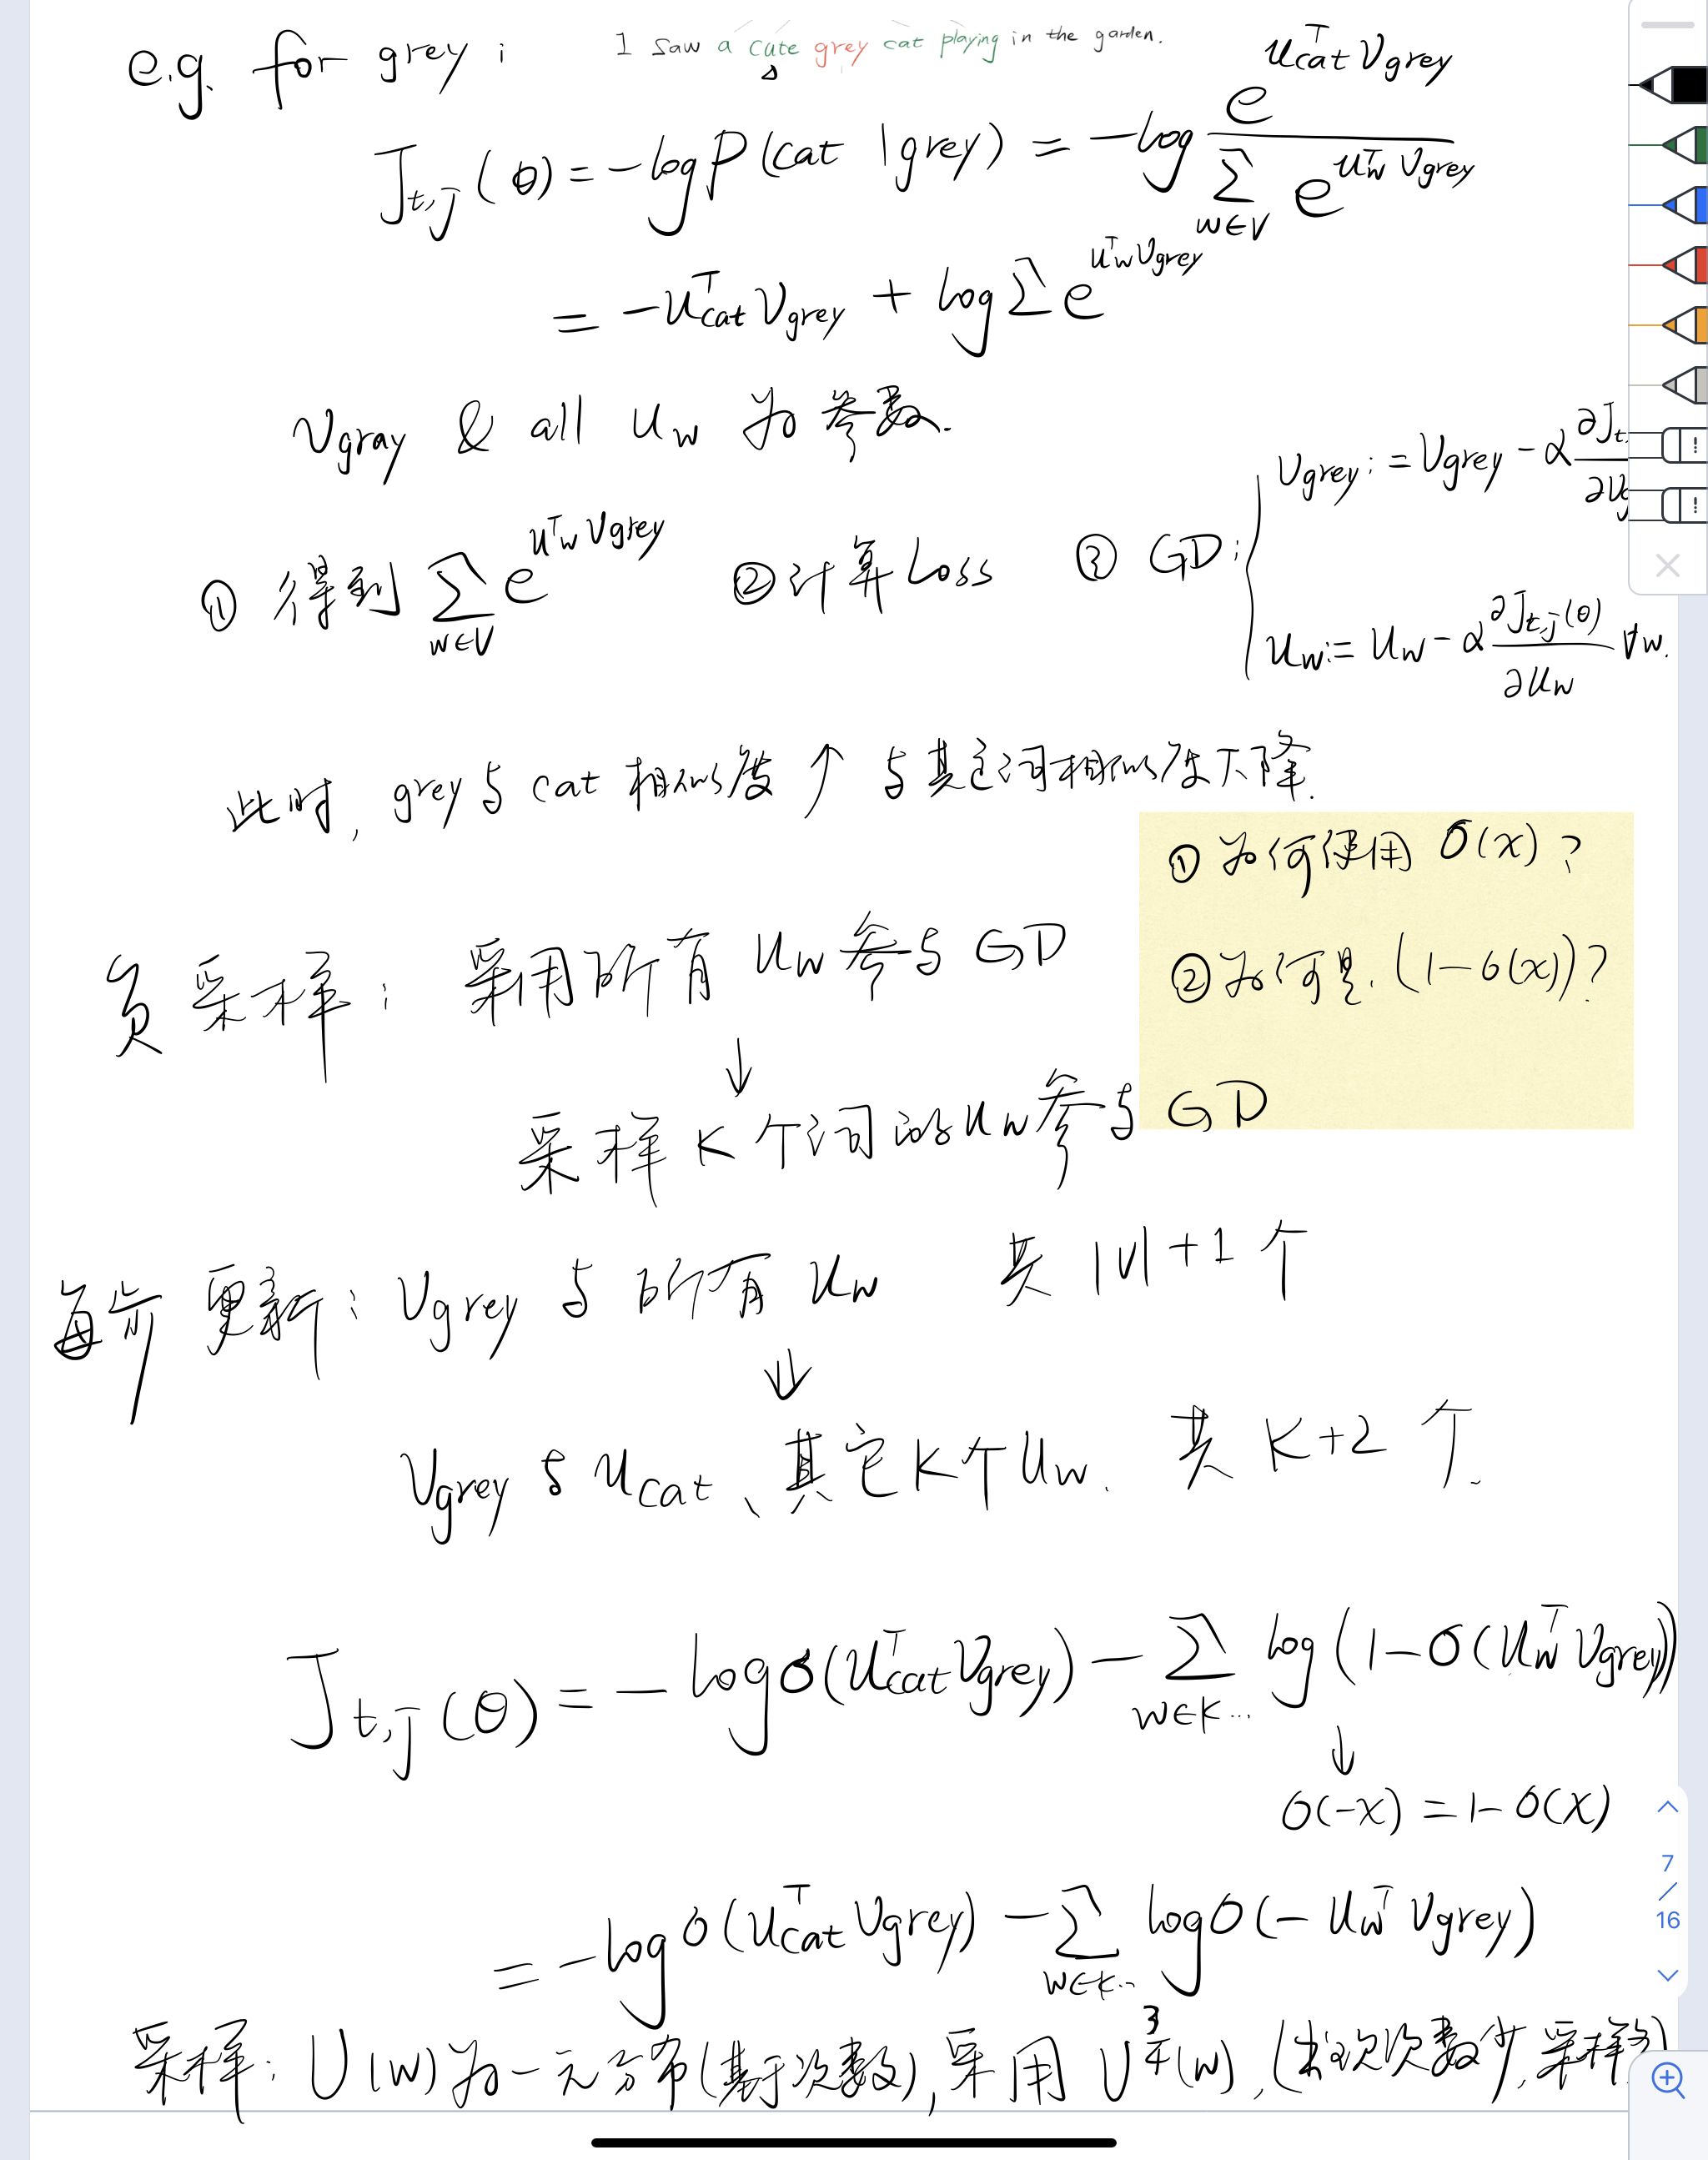 e.g. for grey :
I saw a cute grey cat playing in the garden.
J_{t,j}(θ) = -log P(cat | grey) = -log \frac{e^{u_{cat}^T v_{grey}}}{\sum_{w∈V} e^{u_w^T v_{grey}}}
= -u_{cat}^T v_{grey} + log Σ e^{u_w^T v_{grey}}
v_{gray} & all u_w 为参数.
① 得到 \sum_{w∈V} e^{u_w^T v_{grey}} ② 计算 Loss ③ GD:
v_{grey} := v_{grey} - α \frac{∂J_t}{∂v_g}
u_w := u_w - α \frac{∂J_{t,j}(θ)}{∂u_w} ∀w.
此时, grey 与 cat 相似度 ↑ 与其它词相似度下降.
① 为何使用 σ(x) ?
② 为何是 (1-σ(x))?
负采样: 采用所有 u_w 参与 GD
↓
采样 K 个词的 u_w 参与 GD
每步更新: v_{grey} 与 所有 u_w 共 |V|+1 个
↓
v_{grey} 与 u_{cat}、其它K个 u_w. 共 K+2 个.
J_{t,j}(θ) = -log σ(u_{cat}^T v_{grey}) - \sum_{w∈K...} log(1-σ(u_w^T v_{grey}))
↓
σ(-x) = 1-σ(x)
= -log σ(u_{cat}^T v_{grey}) - \sum_{w∈K...} log σ(-u_w^T v_{grey})
采样: U(w)为一元分布(基于次数), 采用 U^{\frac{3}{4}}(w), (出现次数少, 采样多)
7
/
16